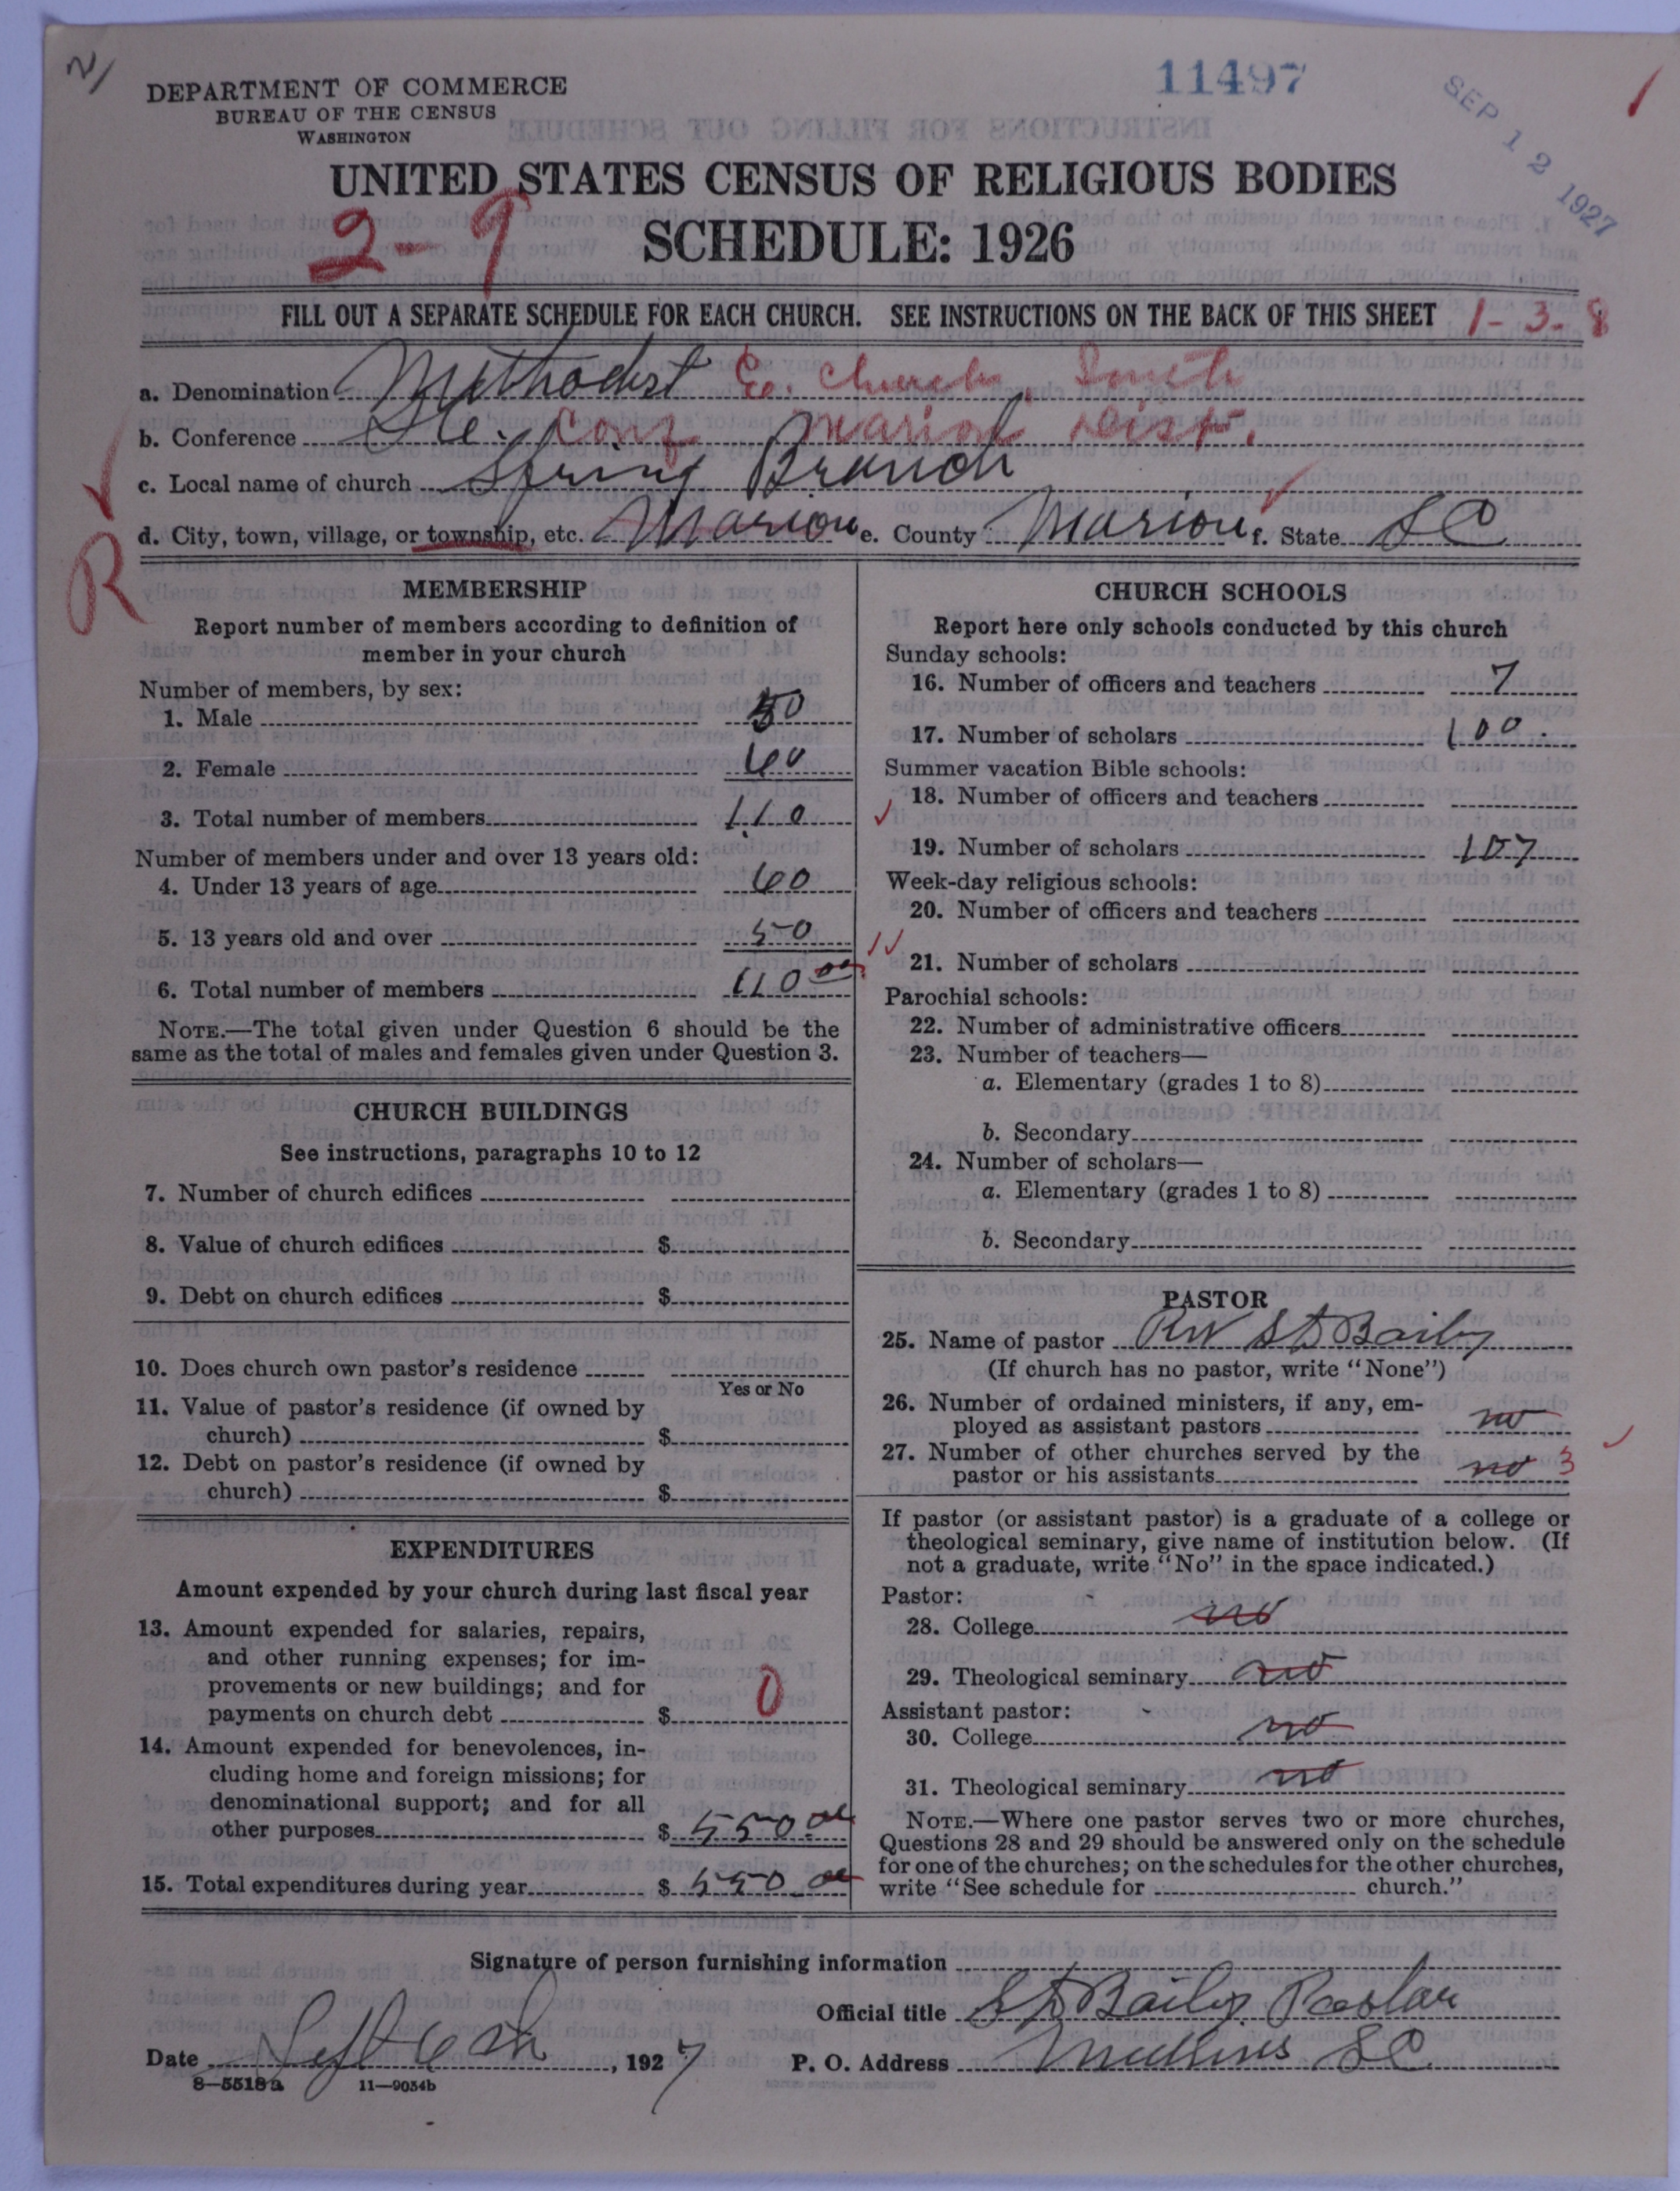 11497
SEP 12 1927
DEPARTMENT OF COMMERCE
BUREAU OF THE CENSUS
WASHINGTON
UNITED STATES CENSUS OF RELIGIOUS BODIES
2-9
SCHEDULE: 1926
FILL OUT A SEPARATE SCHEDULE FOR EACH CHURCH. SEE INSTRUCTIONS ON THE BACK OF THIS SHEET 1-3-8
a. Denomination Methodist Ep. Church, South
b. Conference S.C. Conf Marion Dist.
c. Local name of church Spring Branch
d. City, town, village, or township, etc. Marion e. County Marion f. State S C
R
MEMBERSHIP
Report number of members according to definition of
member in your church
Number of members, by sex:
1. Male 50
2. Female 60
3. Total number of members 110
Number of members under and over 13 years old:
4. Under 13 years of age 60
5. 13 years old and over 50
6. Total number of members 110 00
NOTE.—The total given under Question 6 should be the
same as the total of males and females given under Question 3.
CHURCH BUILDINGS
See instructions, paragraphs 10 to 12
7. Number of church edifices
8. Value of church edifices $
9. Debt on church edifices $
10. Does church own pastor's residence
Yes or No
11. Value of pastor's residence (if owned by
church) $
12. Debt on pastor's residence (if owned by
church) $
EXPENDITURES
Amount expended by your church during last fiscal year
13. Amount expended for salaries, repairs,
and other running expenses; for im-
provements or new buildings; and for
payments on church debt $ 0
14. Amount expended for benevolences, in-
cluding home and foreign missions; for
denominational support; and for all
other purposes $ 550.00
15. Total expenditures during year $ 550.00
CHURCH SCHOOLS
Report here only schools conducted by this church
Sunday schools:
16. Number of officers and teachers 7
17. Number of scholars 100
Summer vacation Bible schools:
18. Number of officers and teachers
19. Number of scholars 107
Week-day religious schools:
20. Number of officers and teachers
21. Number of scholars
Parochial schools:
22. Number of administrative officers
23. Number of teachers—
a. Elementary (grades 1 to 8)
b. Secondary
24. Number of scholars—
a. Elementary (grades 1 to 8)
b. Secondary
PASTOR
25. Name of pastor Rev S D Baily
(If church has no pastor, write "None")
26. Number of ordained ministers, if any, em-
ployed as assistant pastors no
27. Number of other churches served by the
pastor or his assistants no 3
If pastor (or assistant pastor) is a graduate of a college or
theological seminary, give name of institution below. (If
not a graduate, write "No" in the space indicated.)
Pastor:
28. College no
29. Theological seminary no
Assistant pastor:
30. College no
31. Theological seminary no
NOTE.—Where one pastor serves two or more churches,
Questions 28 and 29 should be answered only on the schedule
for one of the churches; on the schedules for the other churches,
write "See schedule for church."
Signature of person furnishing information
Official title S D Baily Pastor
Date Sept 6th, 1927 P. O. Address Mullins S C
8—5518a 11—9054b